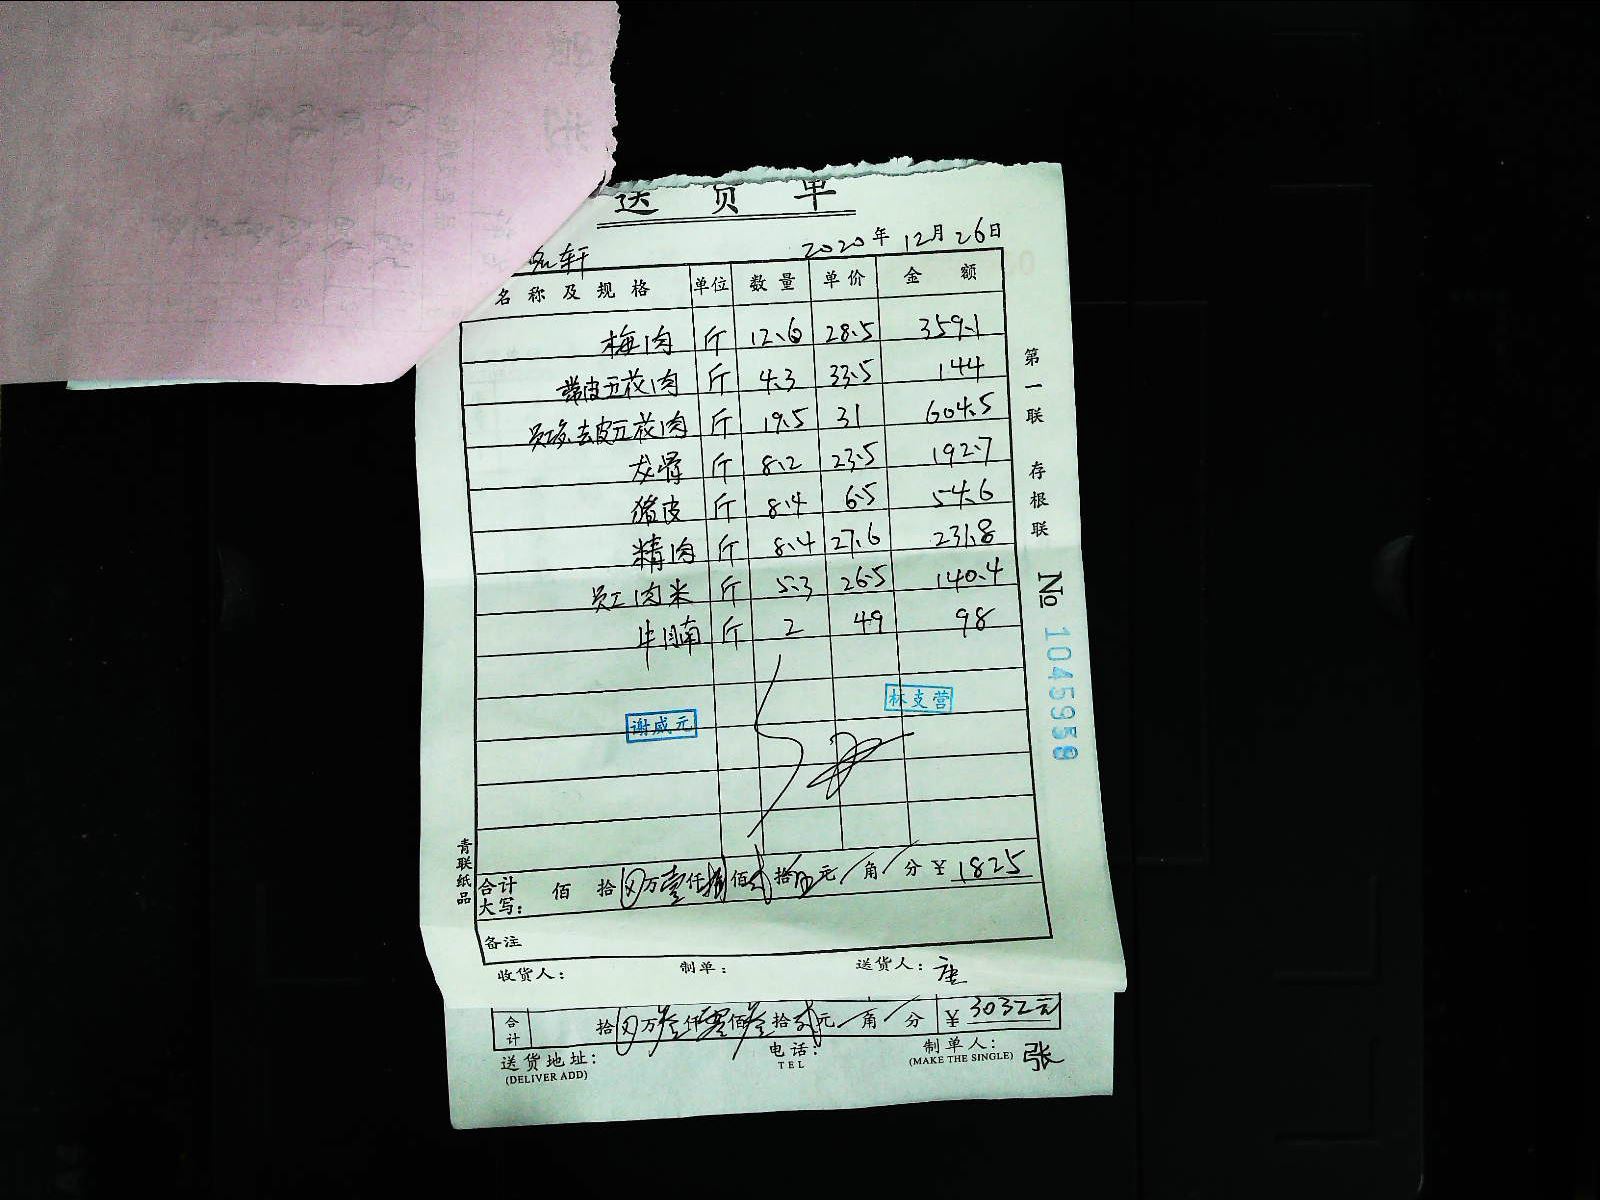 送货单
轩 2020年12月26日
名称及规格 单位 数量 单价 金额
梅肉 斤 12.6 28.5 359.1
带皮五花肉 斤 4.3 33.5 144
去皮五花肉 斤 19.5 31 604.5
龙骨 斤 8.2 23.5 192.7
猪皮 斤 8.4 6.5 54.6
精肉 斤 8.4 27.6 231.8
员工肉米 斤 5.3 26.5 140.4
牛腩 斤 2 49 98
林支营
谢威元
合计大写: 佰 拾 万壹仟捌佰贰拾伍元 角 分 ¥1825
备注
收货人: 制单: 送货人: 唐
第一联 存根联
№ 1045959
青联纸品
合计 拾 万叁仟零佰叁拾贰元 角 分 ¥ 3032元
送货地址: 电话: 制单人: 张
(DELIVER ADD) TEL (MAKE THE SINGLE)